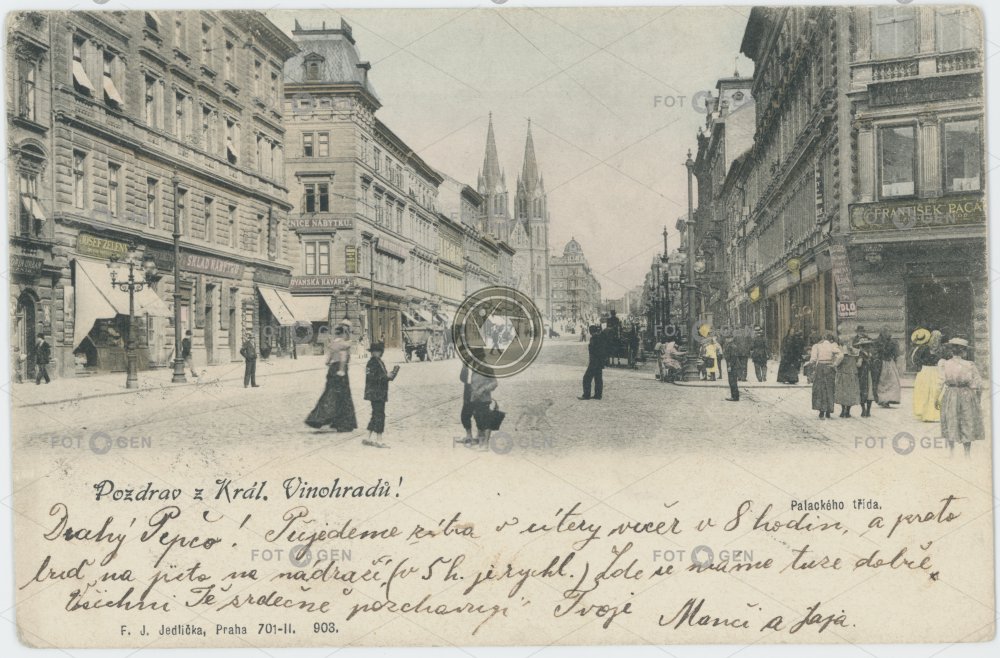 JOSEF ZELENÝ
SKLAD NÁBYTKU
NICE NÁBYTKU
OVANSKÁ KAVÁR
FRANTIŠEK BAČÁ
FOTOGEN
FOTOGEN
FOTOGEN
FOTOGEN
Pozdrav z Král. Vinohradů!
Palackého třída.
Drahý Pepčo! Půjedeme zítra v úterý večér v 8 hodin, a proto
buď na na nádraží (v 5 h. je rychl.) Zde se máme tuze dobře
Všichni Tě srdečně pozdravují Tvoje Manči a Jaja.
FOTOGEN
FOTOGEN
F. J. Jedlička, Praha 701-II. 903.